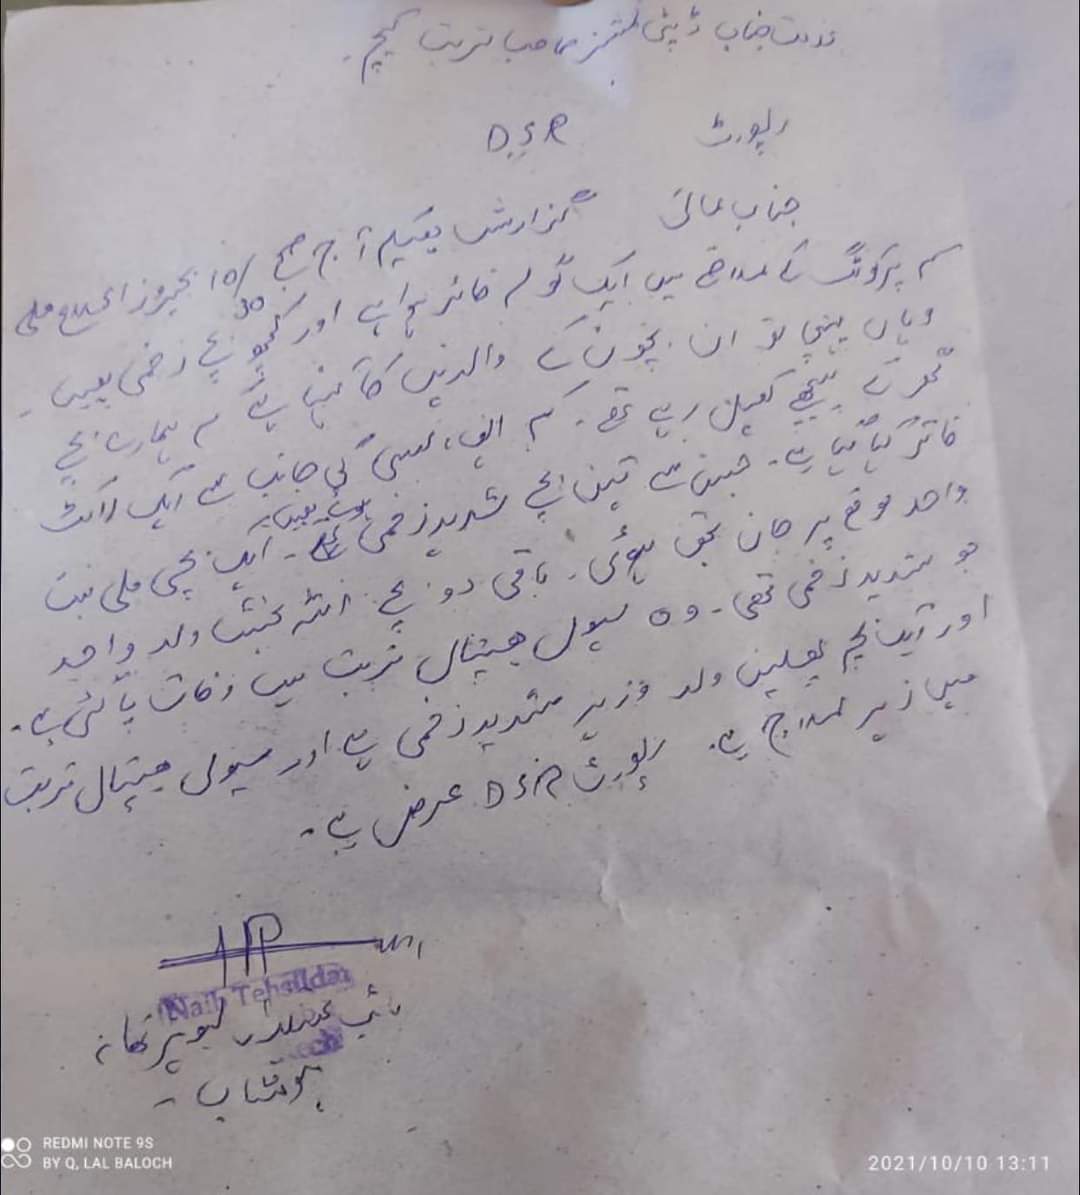 خدمت جناب ڈپٹی کمشنر صاحب تربت کیچ۔
رپورٹ D.S.R
جناب عالی
گزارش ہیکہ آج صبح 10/30 بجے روز اطلاع ملی
کہ پرکوٹگ کے علاقے میں ایک گولہ فائر ہوا ہے اور کچھ بچے زخمی ہیں۔
وہاں پہنچی تو ان بچوں کے والدین کا کہنا ہے کہ ہمارے بچے
گھر کے پیچھے کھیل رہے تھے۔ کہ ایف سی کی جانب سے ایک راکٹ
فائر کیا گیا ہے۔ جس سے تین بچے شدید زخمی ہوئے ہیں۔ ایک بچی ملی بنت
واحد موقع پر جان بحق ہوئی۔ باقی دو بچے اللہ بخش ولد واحد
جو شدید زخمی تھی۔ وہ سول ہسپتال تربت میں وفات پا گئی ہے۔
اور ایک بچہ ولد وزیر شدید زخمی ہے اور سول ہسپتال تربت
میں زیر علاج ہے۔ رپورٹ DSR عرض ہے۔
Naib Tehsildar
نائب تحصیلدار لیویز تھانہ
ہوشاب۔
REDMI NOTE 9S
BY Q, LAL BALOCH
2021/10/10 13:11